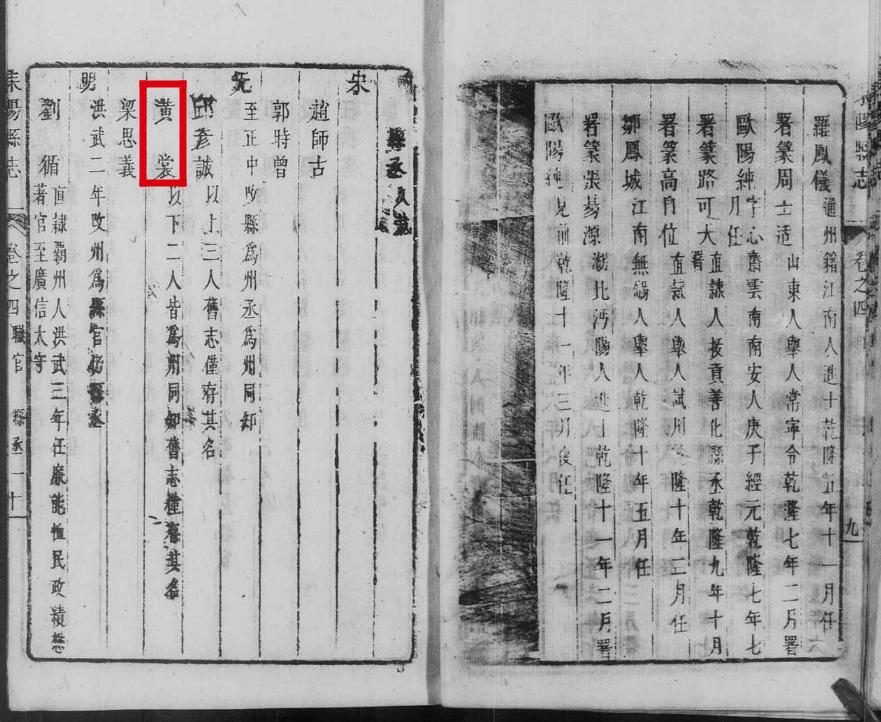 羅鳳儀通州籍江南人進士乾隆五年十一月任
署篆周士适山東人舉人常寧令乾隆七年二月署
歐陽紳字心齋雲南南安人庚子經元乾隆七年七月任
署篆路可大直隸人拔貢善化縣丞乾隆九年十月署
署篆高自位直隸人舉人乾隆十年三月任
鄒鳳城江南無錫人舉人乾隆十年五月任
署篆張綦源湖北沔陽人進士乾隆十一年二月署
歐陽紳見前乾隆十一年三月復任
縣丞
宋
趙師古
郭時曾
元
至正中改縣為州丞為州同知
邱彥誠以上三人舊志僅存其名
黃裳以下二人皆為州同知舊志種存其名
梁思義
明
洪武二年改州為縣官仍縣丞
劉循直隸霸州人洪武三年任廉能恤民政績懋著官至廣信太守
耒陽縣志
卷之四
職官
縣丞
十
耒陽縣志
卷之四
九